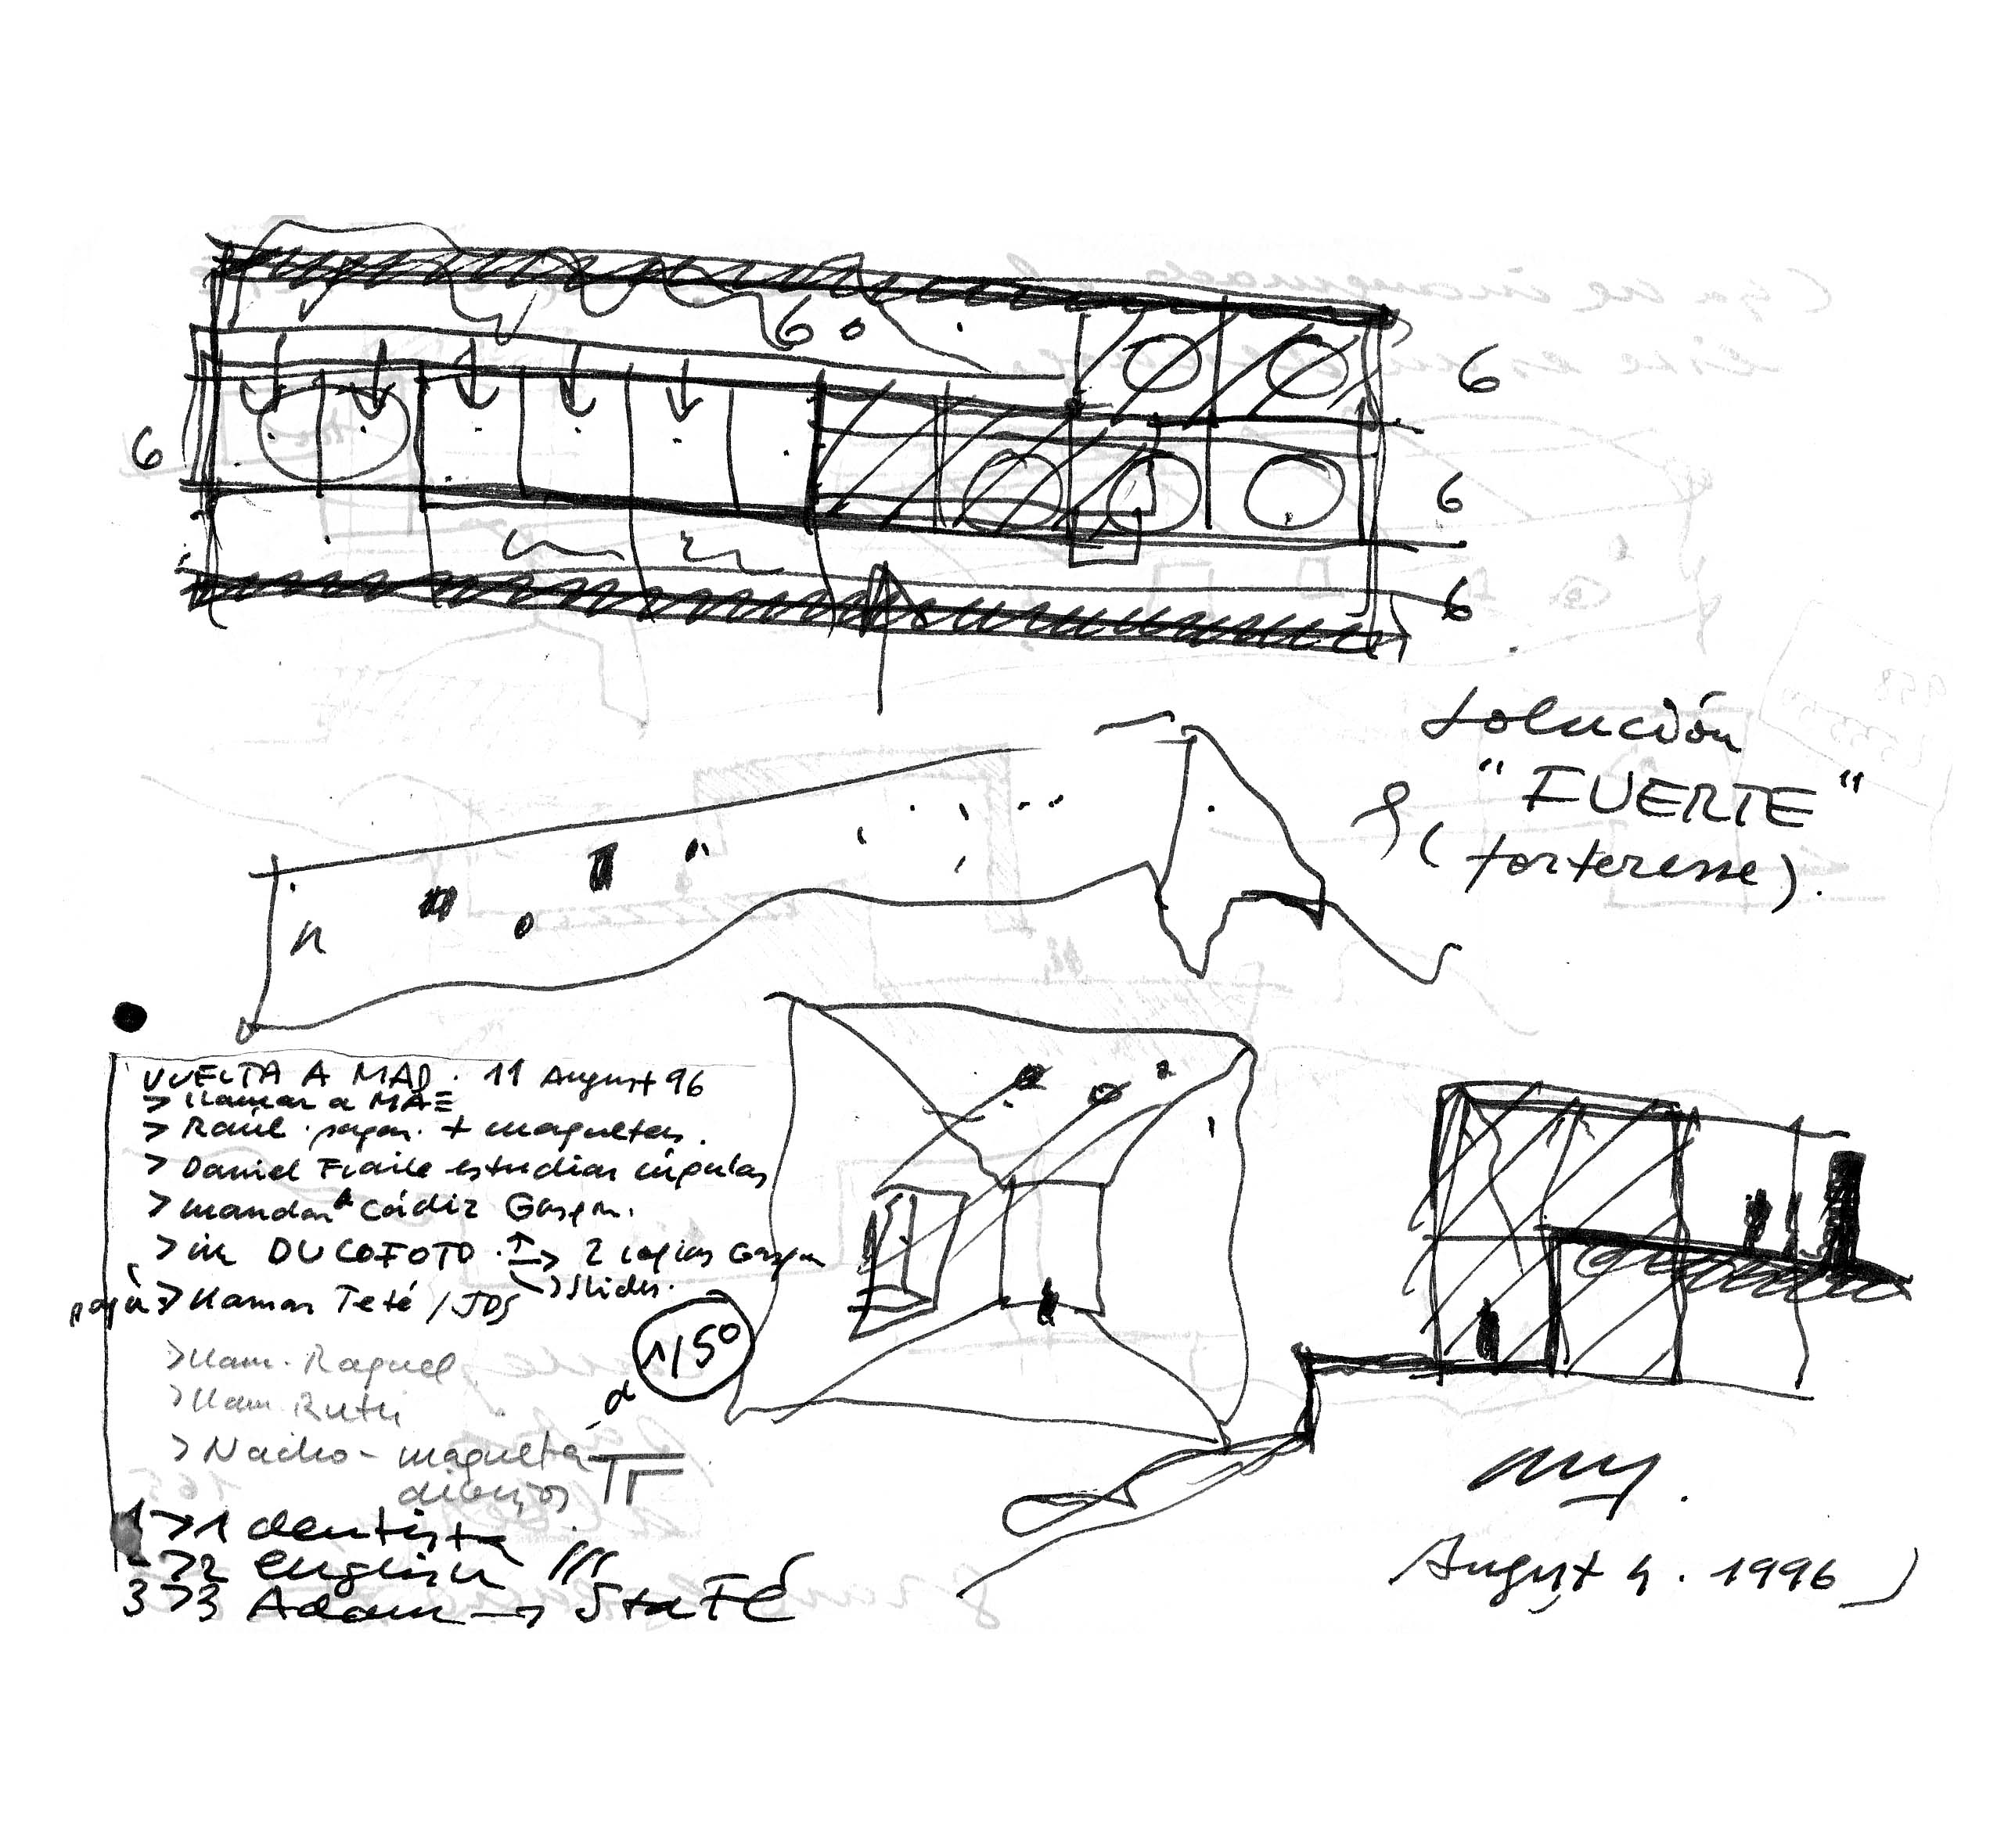 6
6
6
6
6
solución
"FUERTE"
(forteresse).
VUELTA A MAD. 11 August 96
> llamar a MAE
> Raúl pagar + maquetas.
> Daniel Fraile estudiar cúpulas
> mandar a Cádiz Gaspar.
> ir DUCOFOTO → 2 copias Gaspar
→ slides.
papá > llamar Teté / JDS
1/5º
> llam. Raquel
> llam. Ruth
> Nacho - maqueta
1 > 1 dentista
2 > 2 english
3 > 3 Adam → Sta FÉ
August 4. 1996